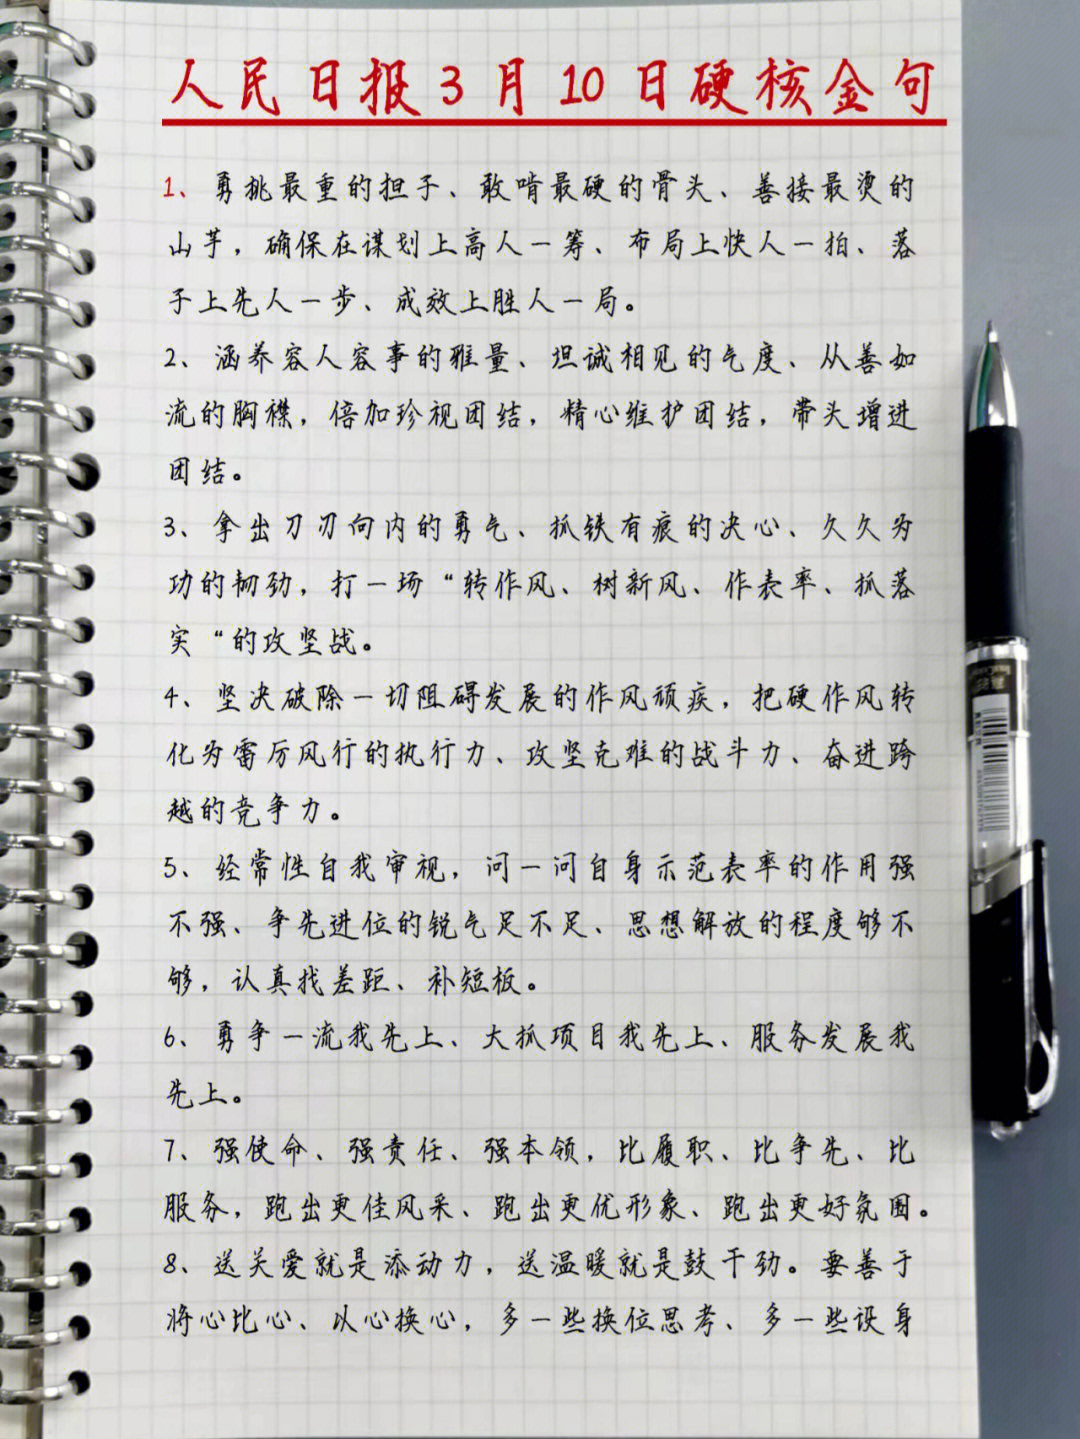 人民日报3月10日硬核金句
1、勇挑最重的担子、敢啃最硬的骨头、善接最烫的
山芋，确保在谋划上高人一筹、布局上快人一拍、落
子上先人一步、成效上胜人一局。
2、涵养容人容事的雅量、坦诚相见的气度、从善如
流的胸襟，倍加珍视团结，精心维护团结，带头增进
团结。
3、拿出刀刃向内的勇气、抓铁有痕的决心、久久为
功的韧劲，打一场“转作风、树新风、作表率、抓落
实“的攻坚战。
4、坚决破除一切阻碍发展的作风顽疾，把硬作风转
化为雷厉风行的执行力、攻坚克难的战斗力、奋进跨
越的竞争力。
5、经常性自我审视，问一问自身示范表率的作用强
不强、争先进位的锐气足不足、思想解放的程度够不
够，认真找差距、补短板。
6、勇争一流我先上、大抓项目我先上、服务发展我
先上。
7、强使命、强责任、强本领，比履职、比争先、比
服务，跑出更佳风采、跑出更优形象、跑出更好氛围。
8、送关爱就是添动力，送温暖就是鼓干劲。要善于
将心比心、以心换心，多一些换位思考、多一些设身